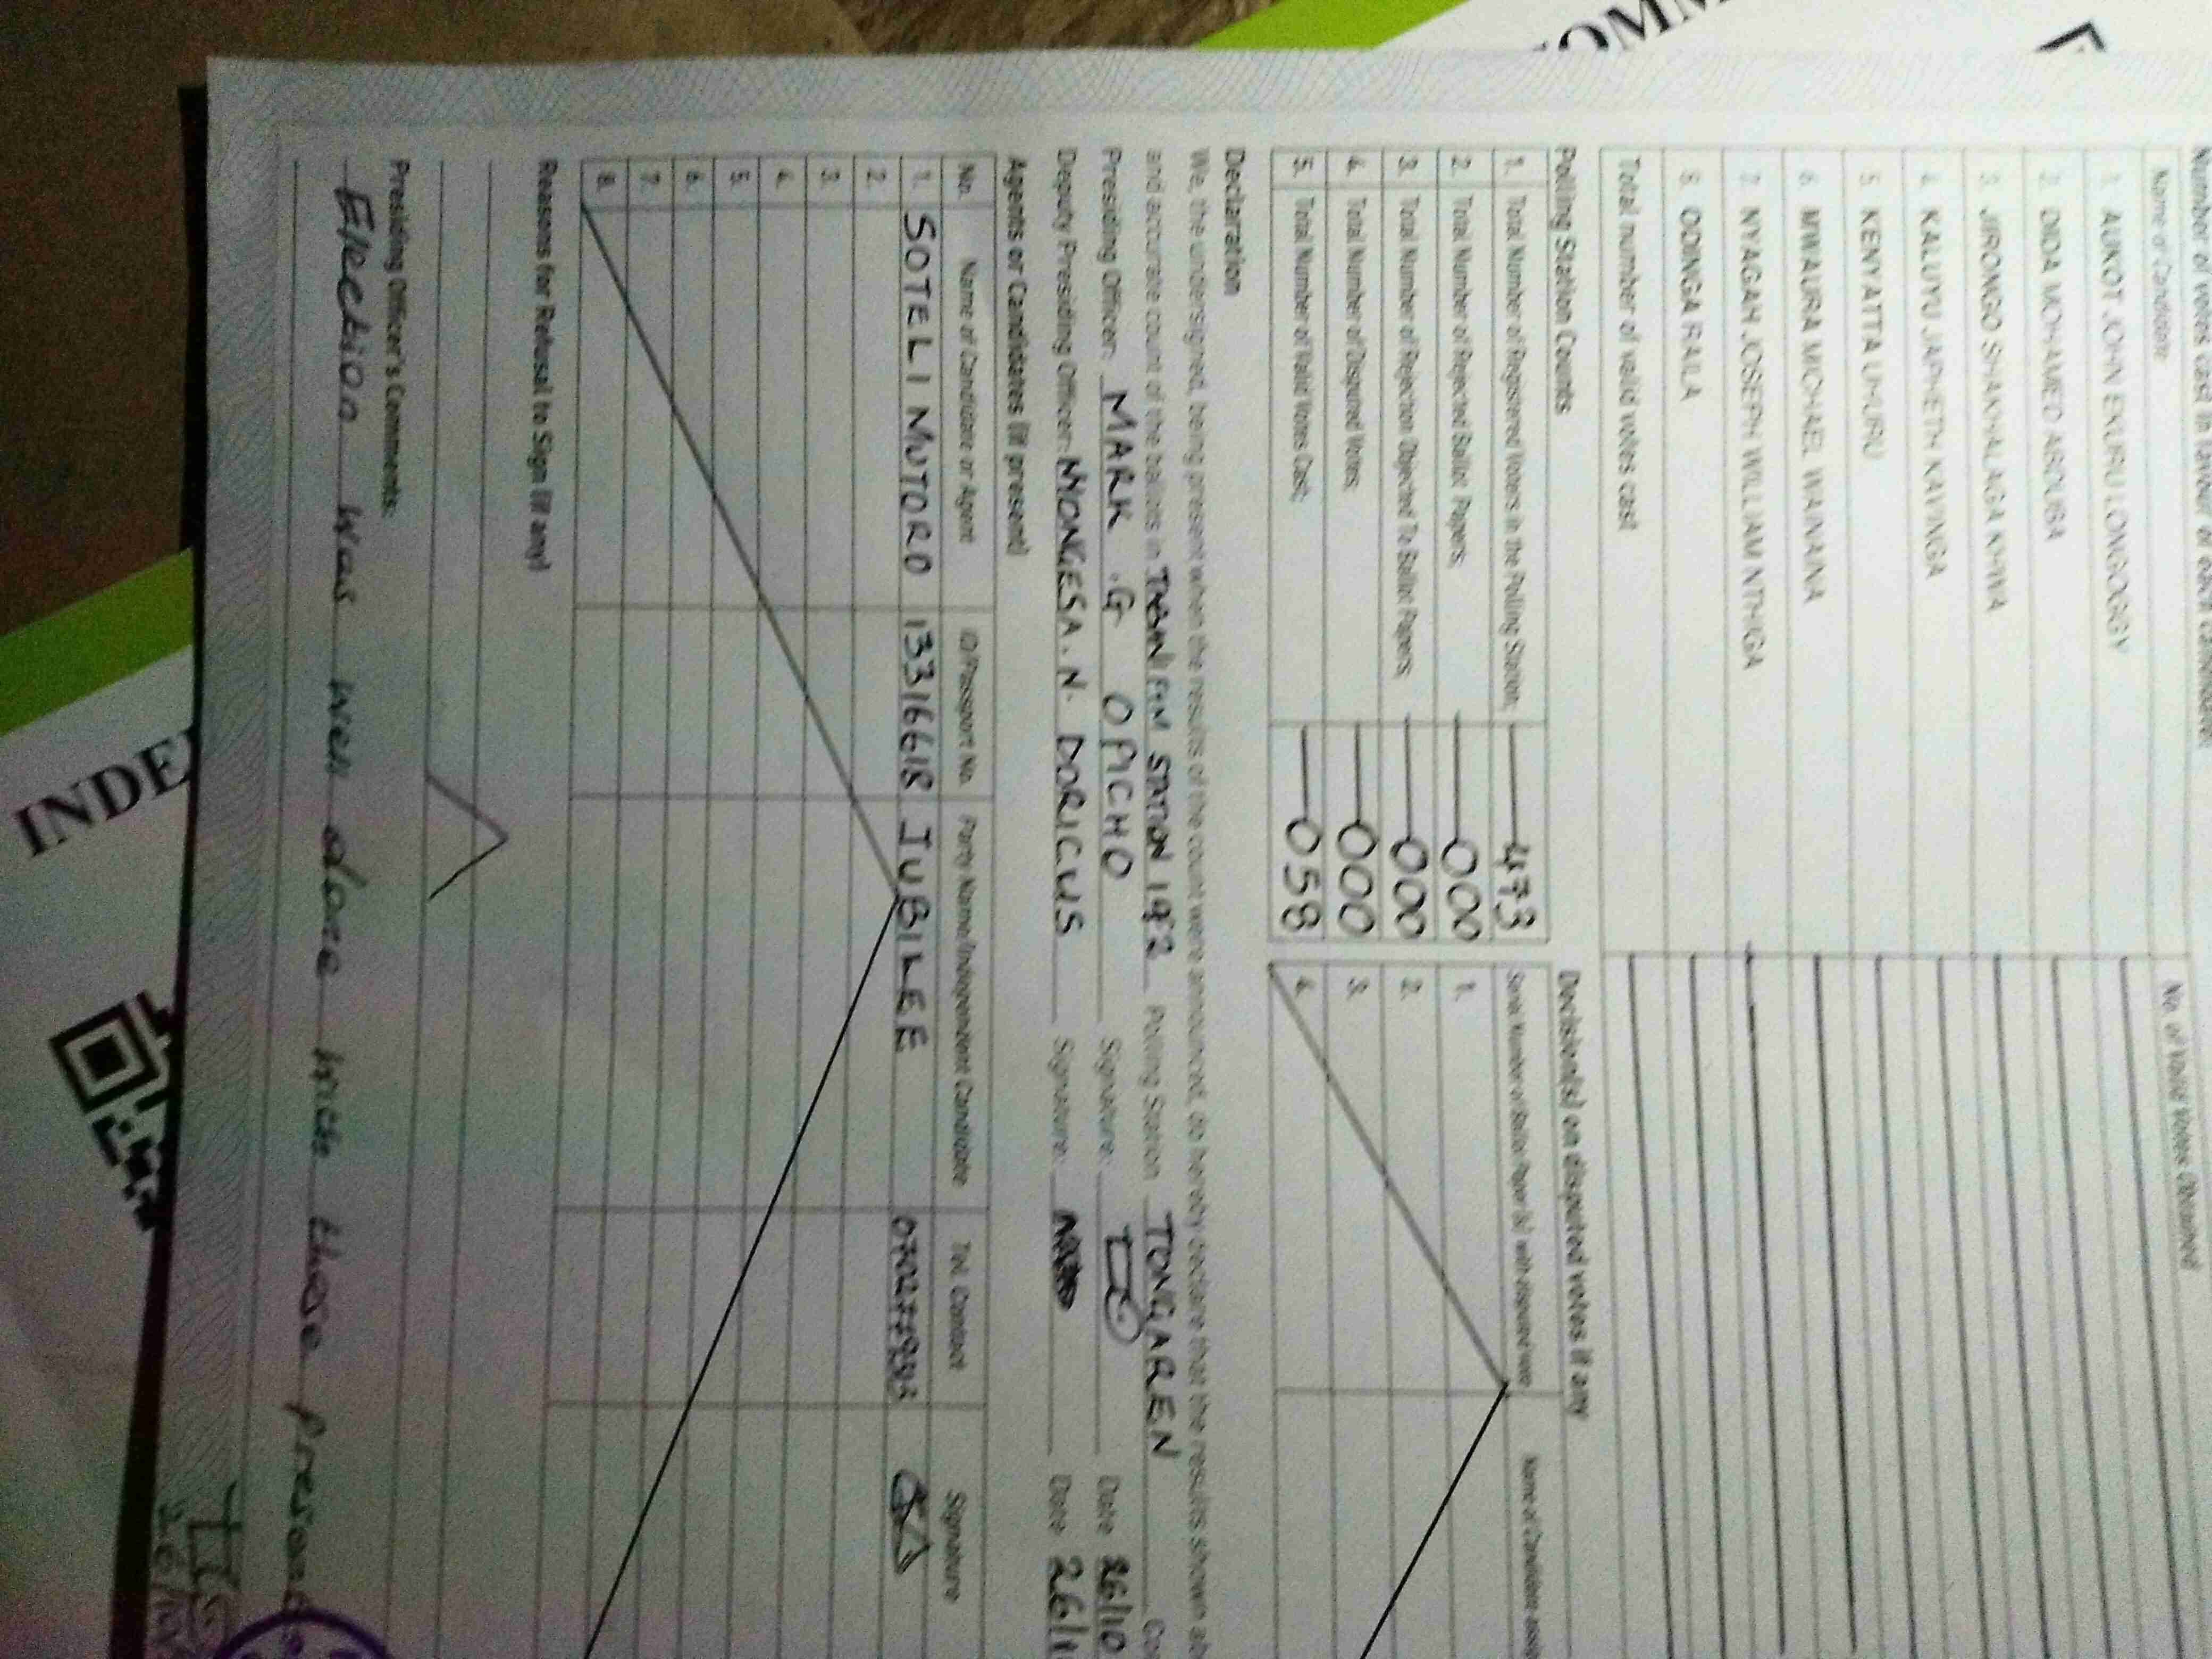 Number of votes cast in favor of each candidate:
Name of Candidate No. of Valid Votes Obtained
1. AUKOT JOHN EKURU LONGOGGY
2. DIDA MOHAMED ABDUBA
3. JIRONGO SHAKHALAGA KHWA
4. KALUYU JAPHETH KAVINGA
5. KENYATTA UHURU
6. MWAURA MICHAEL WAINAINA
7. NYAGAH JOSEPH WILLIAM NTHIGA
8. ODINGA RAILA
Total number of valid votes cast
Polling Station Counts
1. Total Number of Registered Voters in the Polling Station; 473
2. Total Number of Rejected Ballot Papers; 000
3. Total Number of Rejection Objected To Ballot Papers; 000
4. Total Number of Disputed Votes; 000
5. Total Number of Valid Votes Cast; 058
Decision(s) on disputed votes if any
Serial Number of Ballot Paper (s) with disputed vote Name of Candidate
1.
2.
3.
4.
Declaration
We, the undersigned, being present when the results of the count were announced, do hereby declare that the results shown
and accurate count of the ballots in STATION Polling Station TONGAREN
Presiding Officer: MARK .G OPICHO Signature: Date 26/10
Deputy Presiding Officer: NYONGESA. N. DORICUS Signature: Date 26/1
Agents or Candidates (if present)
No. Name of Candidate or Agent ID/Passport No. Party Name/Independent Candidate Tel. Contact Signature
1. SOTELI MUTORO 13316618 JUBILEE
2.
3.
4.
5.
6.
7.
8.
Reasons for Refusal to Sign (if any)
Presiding Officer's Comments:
Election was well done with those present
INDE